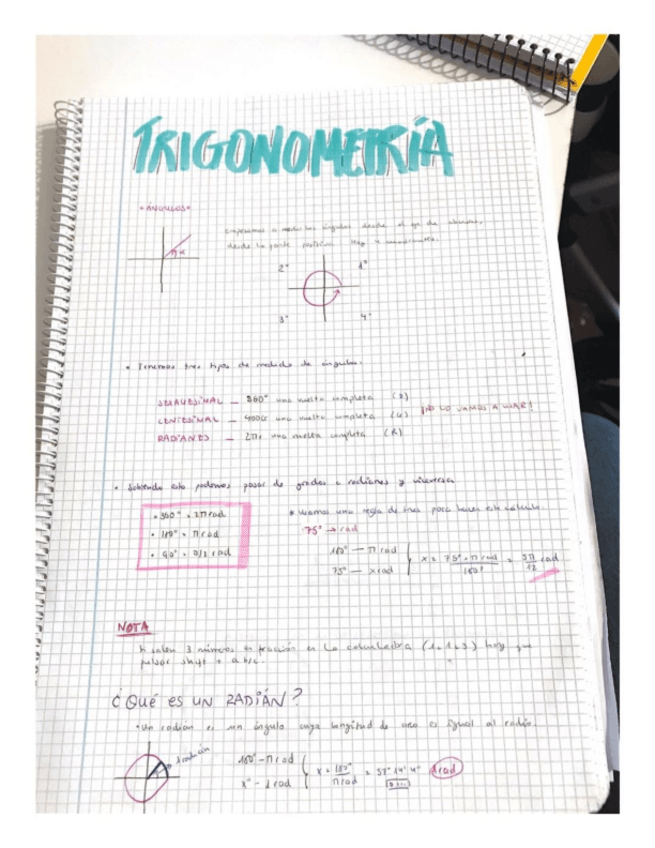 TRIGONOMETRÍA
• ÁNGULOS •
Empezamos a medir los ángulos desde el eje de abscisas,
desde la parte positiva. Hay 4 cuadrantes.
α
2º 1º
3º 4º
• Tenemos tres tipos de medida de ángulos.
SEXAGESIMAL — 360° una vuelta completa
CENTESIMAL — 400G una vuelta completa (G) ¡NO LO VAMOS A USAR!
RADIANES — 2π una vuelta completa (R)
• Sabiendo esto podemos pasar de grados a radianes y viceversa
• 360° = 2π rad
• 180° = π rad
• 90° = π/2 rad
* Usamos una regla de tres para hacer este cálculo.
75° → rad
180° — π rad
75° — x rad
x = 75° · π rad / 180° = 5π / 12 rad
NOTA
Si salen 3 números en fracción en la calculadora hay que
pulsar shift + a b/c.
¿QUÉ ES UN RADIÁN?
• Un radián es un ángulo cuya longitud de arco es igual al radio.
1 radián
180° — π rad
x° — 1 rad
x = 180° / π rad = 57° 14' 4" 1 rad